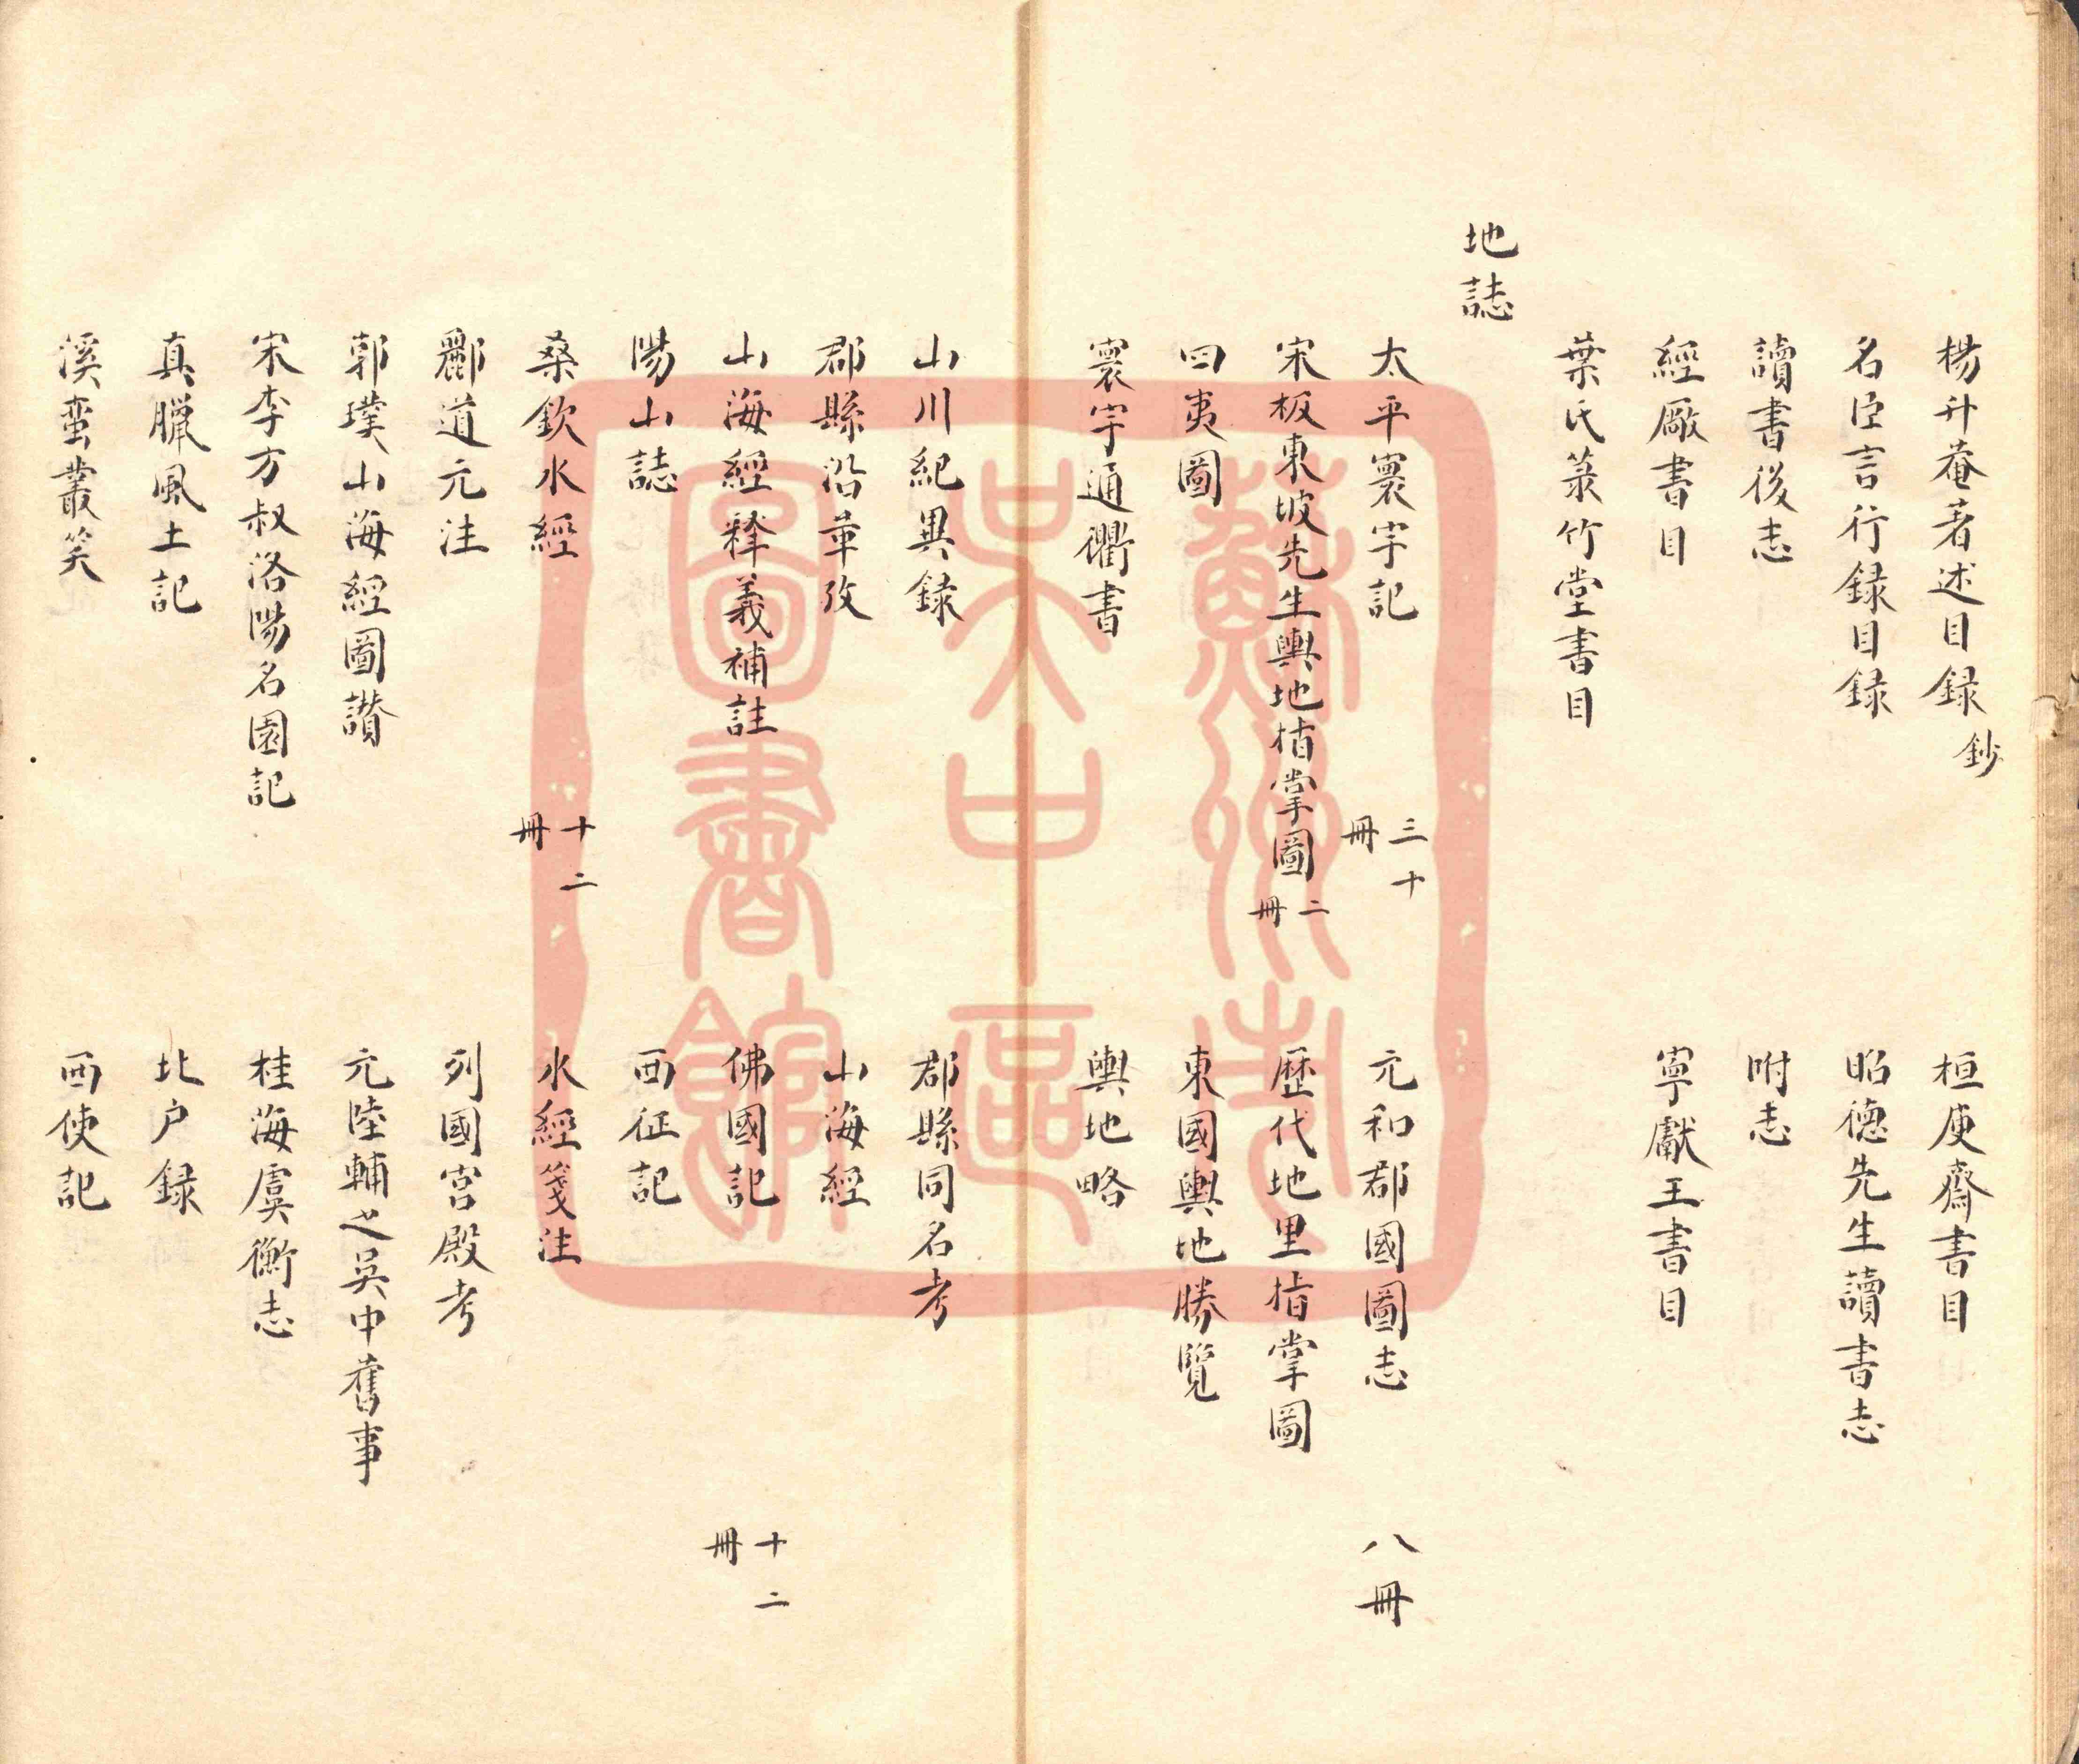 楊升菴著述目録 鈔 桓庚齋書目
名臣言行録目録 昭德先生讀書志
讀書後志 附志
經廠書目 寧獻王書目
葉氏菉竹堂書目
地誌
太平寰宇記 三十冊 元和郡國圖志 八冊
宋板東坡先生輿地指掌圖 二冊 歷代地里指掌圖
四夷圖 東國輿地勝覽
寰宇通衢書 輿地略
山川紀異録 郡縣同名考
郡縣沿革攷 山海經
山海經釋義補註 佛國記 十二冊
陽山誌 西征記
桑欽水經 十二冊 水經箋注
酈道元注 列國宮殿考
郭璞山海經圖讚 元陸輔之吳中舊事
宋李方叔洛陽名園記 桂海虞衡志
真臘風土記 北户録
溪蛮叢笑 西使記
蘇州市
吴中區
圖書館